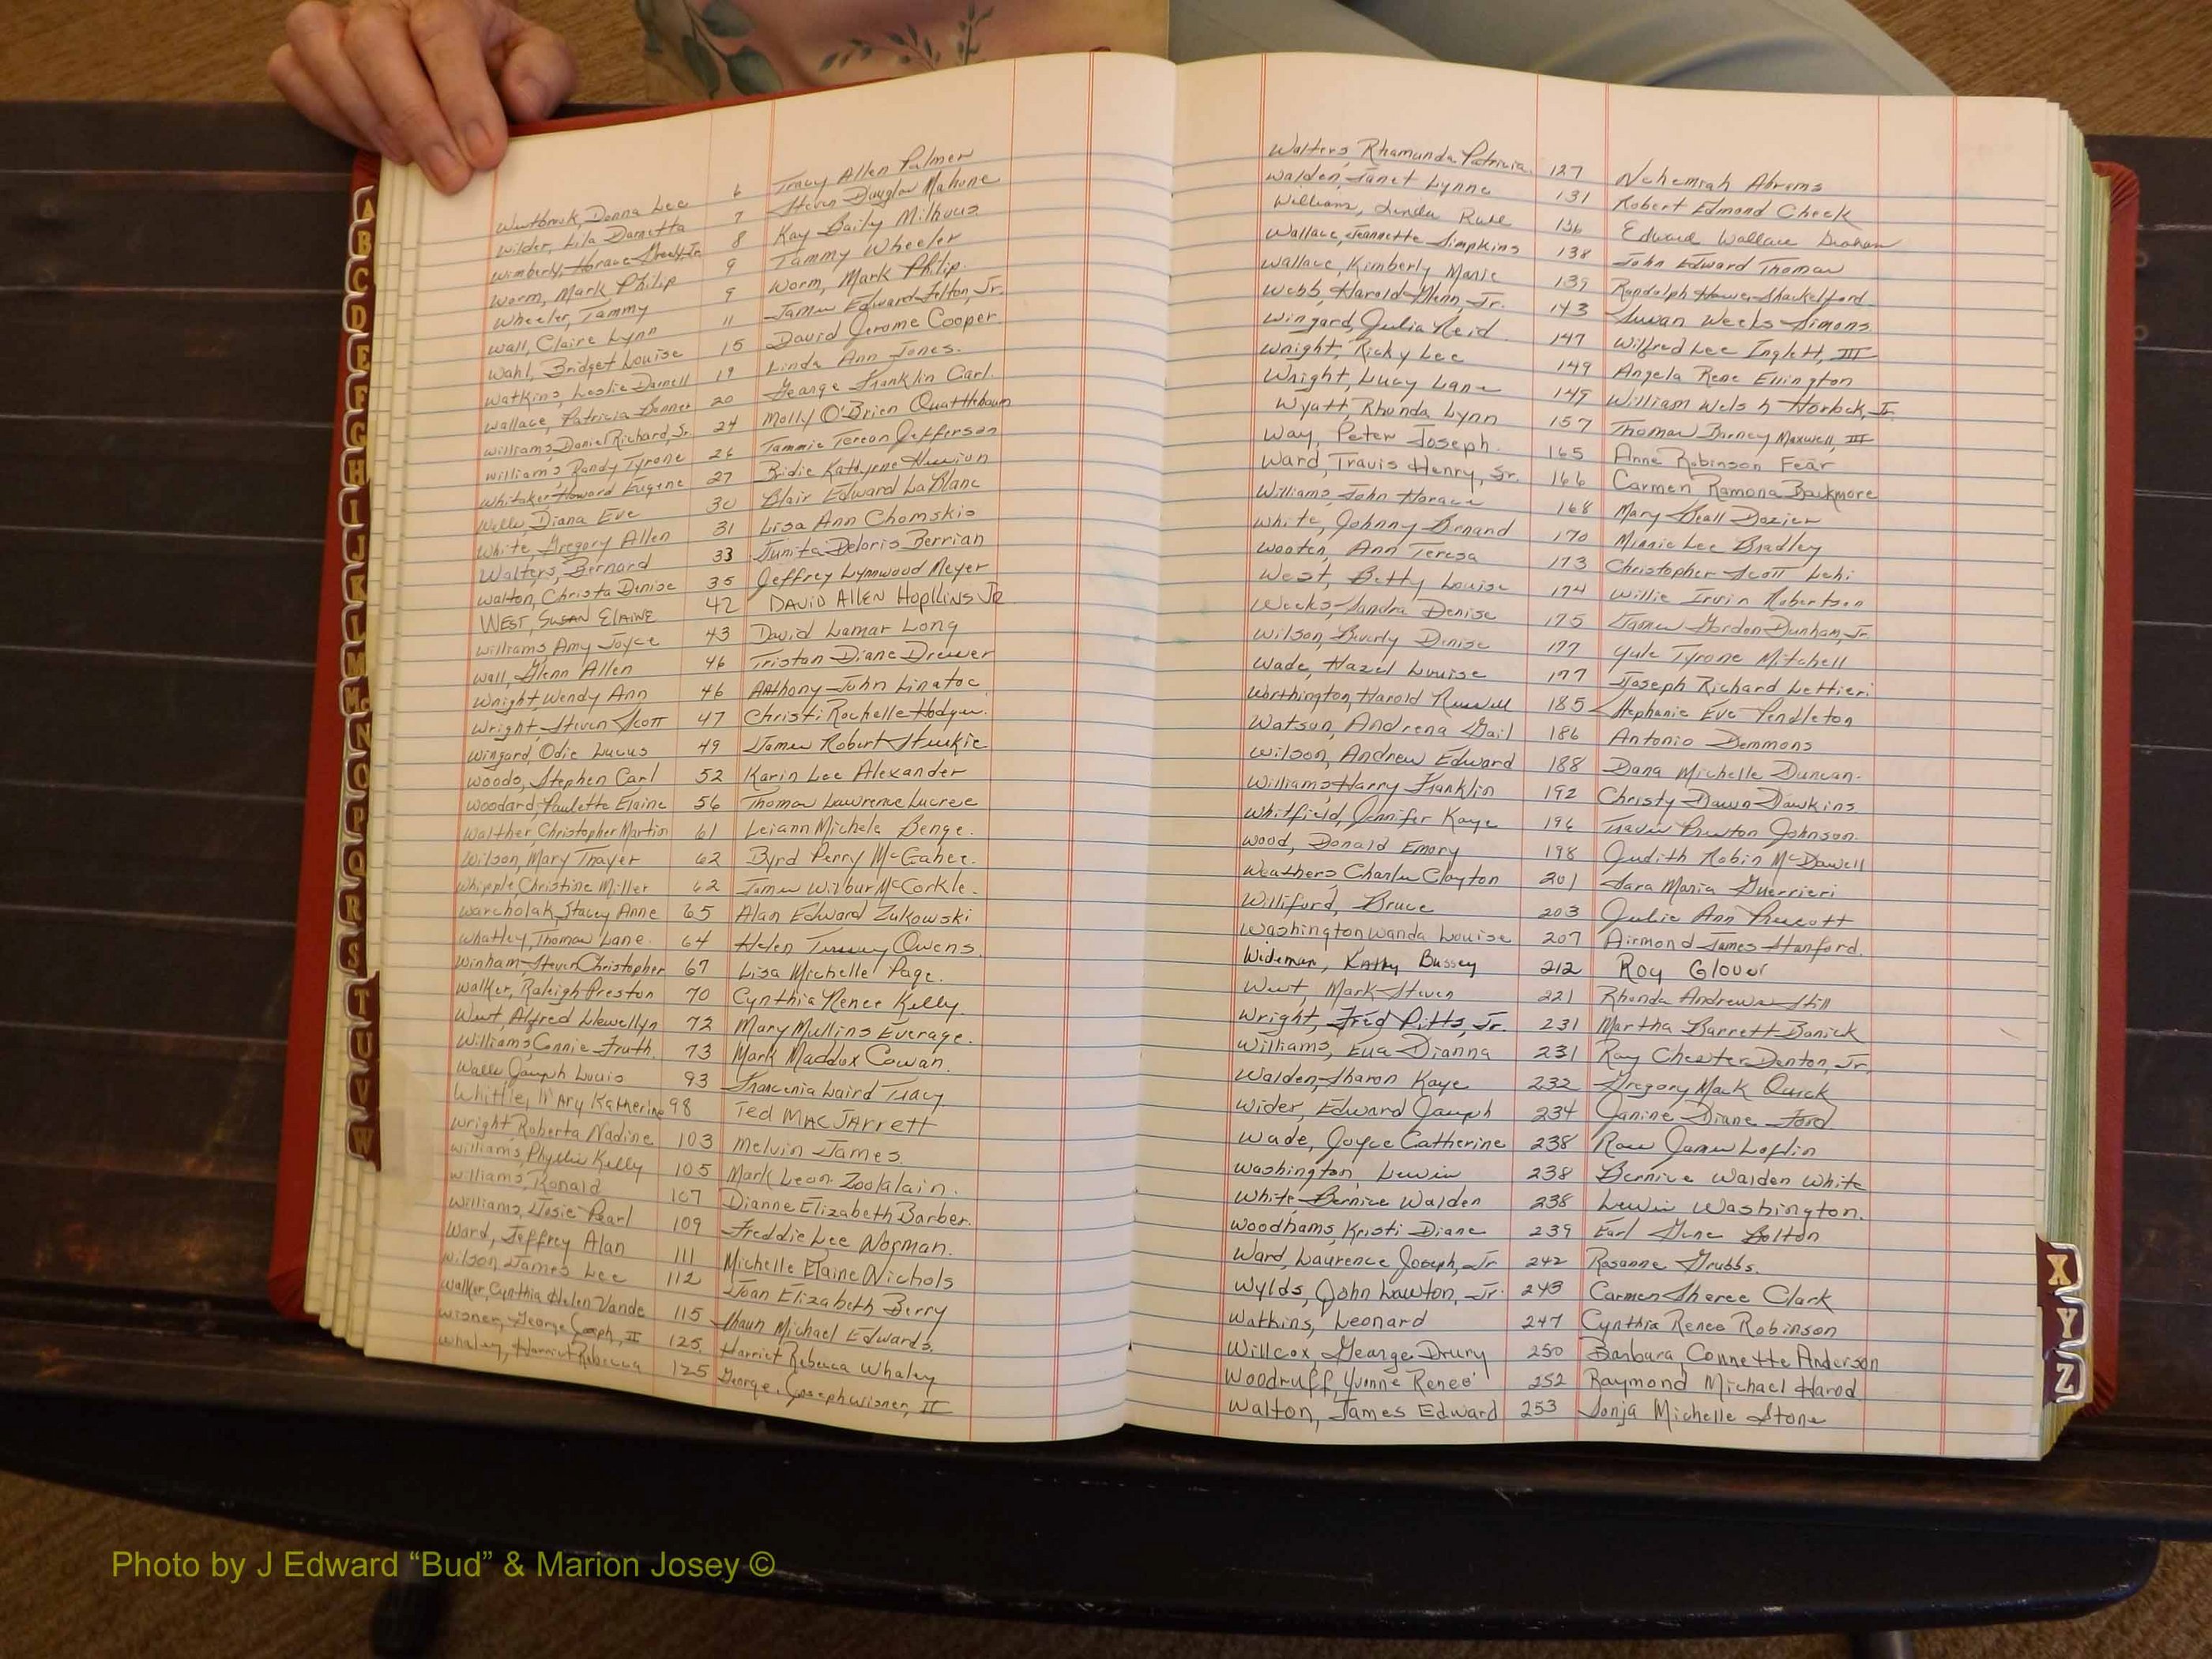 Westbrook, Donna Lee 6 Tracy Allen Palmer
Wilder, Lila Darnetta 7 Steven Douglas Mahone
Wimberly, Horace Greely, Jr. 8 Kay Baily Milhous
Worm, Mark Philip 9 Tammy Wheeler
Wheeler, Tammy 9 Worm, Mark Philip.
Wall, Claire Lynn 11 James Edward Felton, Jr.
Wahl, Bridget Louise 15 David Jerome Cooper
Watkins, Leslie Darnell 19 Linda Ann Jones.
Wallace, Patricia Bonner 20 George Franklin Carl.
Williams, Daniel Richard, Sr. 24 Molly O'Brien Quattlebaum
Williams, Randy Tyrone 26 Tammie Tereon Jefferson
Whitaker, Howard Eugene 27 Bridie Kathyrne
Wells, Diana Eve 30 Blair Edward LaBlanc
White, Gregory Allen 31 Lisa Ann Chomskis
Walters, Bernard 33 Junita Deloris Berrian
Walton, Christa Denise 35 Jeffrey Lynnwood Meyer
WEST, SUSAN ELAINE 42 DAVID ALLEN Hopllins JR
Williams, Amy Joyce 43 David Lamar Long
Wall, Glenn Allen 46 Tristan Diane Drewer
Wright, Wendy Ann 46 Anthony John Linatoc
Wright, Steven Scott 47 Christi Rochelle Hodges.
Wingard, Odie Lucus 49 James Robert Stuckie
Woods, Stephen Carl 52 Karin Lee Alexander
Woodard, Paulette Elaine 56 Thomas Lawrence Lucree
Walther, Christopher Martin 61 Leiann Michele Benge.
Wilson, Mary Thayer 62 Byrd Perry McGahee.
Whipple, Christine Miller 62 James Wilbur McCorkle.
Warcholak, Stacey Anne 65 Alan Edward Zukowski
Whatley, Thomas Lane. 64 Helen Owens.
Winham, Steven Christopher 67 Lisa Michelle Page.
Walker, Raleigh Preston 70 Cynthia Renee Kelly.
West, Alfred Llewellyn 72 Mary Mullins Everage.
Williams, Connie Truth. 73 Mark Maddox Cowan.
Walls, Joseph Louis 93 Francenia Laird Tracy.
Whittle, Mary Katherine 98 Ted MACJArrett
Wright, Roberta Nadine 103 Melvin James.
Williams, Phyllis Kelly 105 Mark Leon Zoolalain.
Williams, Ronald 107 Dianne Elizabeth Barber.
Williams, Josie Pearl 109 Freddie Lee Norman.
Ward, Jeffrey Alan 111 Michelle Elaine Nichols
Wilson, James Lee 112 Joan Elizabeth Berry
Walker, Cynthia Helen Vande 115 Shaun Michael Edwards.
Wisner, George Joseph, II 125. Harriet Rebecca Whaley
Whaley, Harriet Rebecca 125 George Joseph Wisner, II
Walters, Rhamunda Patricia 127 Nehemiah Abrams
Walden, Janet Lynne 131 Robert Edmond Cheek
Williams, Linda Rule 136 Edward Wallace Graham
Wallace, Jeannette Simpkins 138 John Edward Thomas
Wallace, Kimberly Marie 139 Randolph Shackelford
Webb, Harold Glenn, Jr. 143 Susan Weeks Simons
Wingard, Julia Reid 147 Wilfred Lee Inglett, III
Wright, Ricky Lee 149 Angela Rene Ellington
Wright, Lucy Lane 149 William Welsh Horlock, Jr.
Wyatt, Rhonda Lynn 157 Thomas Barney Maxwell, III
Way, Peter Joseph. 165 Anne Robinson Fear
Ward, Travis Henry, Sr. 166 Carmen Ramona Backmore
Williams, John Horace 168 Mary Beall Dozier
White, Johnny Bernand 170 Minnie Lee Bradley
Wooten, Ann Teresa 173 Christopher Scott Lehi
West, Betty Louise 174 Willie Irvin Robertson
Weeks, Sandra Denise 175 James Gordon Dunham, Jr.
Wilson, Beverly Denise 177 Yule Tyrone Mitchell
Wade, Hazel Louise 177 Joseph Richard Lettieri
Worthington, Harold Russell 185 Stephanie Eve Pendleton
Watson, Andrena Gail 186 Antonio Demmons
Wilson, Andrew Edward 188 Dana Michelle Duncan.
Williams, Harry Franklin 192 Christy Dawn Dawkins.
Whitfield, Jennifer Kaye 196 Travis Preston Johnson.
Wood, Donald Emory 198 Judith Robin McDowell
Weathers, Charles Clayton 201 Sara Maria Guerrieri
Williford, Bruce 203 Julie Ann Prescott
Washington Wanda Louise 207 Airmond James Stanford.
Wideman, Kathy Bussey 212 Roy Glover
West, Mark Steven 221 Rhonda Andrews Still
Wright, Fred Pitts, Jr. 231 Martha Barrett Banick
Williams, Eua Dianna 231 Ray Chester Denton, Jr.
Walden, Sharon Kaye 232 Gregory Mack Quick
Wider, Edward Joseph 234 Janine Diane Ford
Wade, Joyce Catherine 238 Ross James Loflin
Washington, Lewis 238 Bernice Walden White
White, Bernice Walden 238 Lewis Washington.
Woodhams, Kristi Diane 239 Earl Gene Bolton
Ward, Laurence Joseph, Jr 242 Rosanne Grubbs.
Wylds, John Lawton, Jr. 243 Carmen Sheree Clark
Watkins, Leonard 247 Cynthia Renee Robinson
Willcox, George Drury 250 Barbara Connette Anderson
Woodruff, Yvonne Renee' 252 Raymond Michael Harod
Walton, James Edward 253 Sonja Michelle Stone
A
B
C
D
E
F
G
H
I
J
K
L
M
Mc
N
O
P
Q
R
S
T
U
V
W
X
Y
Z
Photo by J Edward “Bud” & Marion Josey ©